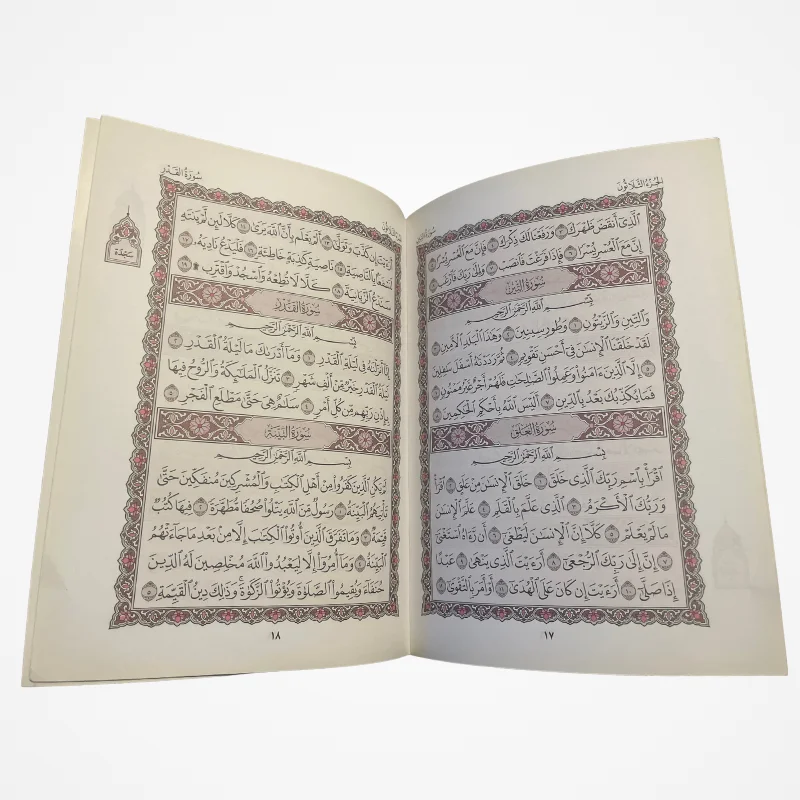 الجُزْءُ الثَّلَاثُونَ
ٱلَّذِىٓ أَنقَضَ ظَهْرَكَ ٣ وَرَفَعْنَا لَكَ ذِكْرَكَ ٤ فَإِنَّ مَعَ ٱلْعُسْرِ يُسْرًا ٥
إِنَّ مَعَ ٱلْعُسْرِ يُسْرًا ٦ فَإِذَا فَرَغْتَ فَٱنصَبْ ٧ وَإِلَىٰ رَبِّكَ فَٱرْغَب ٨
سُورَةُ التِّينِ
بِسْمِ ٱللَّهِ ٱلرَّحْمَٰنِ ٱلرَّحِيمِ
وَٱلتِّينِ وَٱلزَّيْتُونِ ١ وَطُورِ سِينِينَ ٢ وَهَٰذَا ٱلْبَلَدِ ٱلْأَمِينِ ٣
لَقَدْ خَلَقْنَا ٱلْإِنسَٰنَ فِىٓ أَحْسَنِ تَقْوِيمٍ ٤ ثُمَّ رَدَدْنَٰهُ أَسْفَلَ سَٰفِلِينَ ٥
إِلَّا ٱلَّذِينَ ءَامَنُوا۟ وَعَمِلُوا۟ ٱلصَّٰلِحَٰتِ فَلَهُمْ أَجْرٌ غَيْرُ مَمْنُونٍ ٦
فَمَا يُكَذِّبُكَ بَعْدُ بِٱلدِّينِ ٧ أَلَيْسَ ٱللَّهُ بِأَحْكَمِ ٱلْحَٰكِمِينَ ٨
سُورَةُ العَلَقِ
بِسْمِ ٱللَّهِ ٱلرَّحْمَٰنِ ٱلرَّحِيمِ
ٱقْرَأْ بِٱسْمِ رَبِّكَ ٱلَّذِى خَلَقَ ١ خَلَقَ ٱلْإِنسَٰنَ مِنْ عَلَقٍ ٢ ٱقْرَأْ
وَرَبُّكَ ٱلْأَكْرَمُ ٣ ٱلَّذِى عَلَّمَ بِٱلْقَلَمِ ٤ عَلَّمَ ٱلْإِنسَٰنَ
مَا لَمْ يَعْلَمْ ٥ كَلَّآ إِنَّ ٱلْإِنسَٰنَ لَيَطْغَىٰٓ ٦ أَن رَّءَاهُ ٱسْتَغْنَىٰٓ
٧ إِنَّ إِلَىٰ رَبِّكَ ٱلرُّجْعَىٰٓ ٨ أَرَءَيْتَ ٱلَّذِى يَنْهَىٰ ٩ عَبْدًا
إِذَا صَلَّىٰٓ ١٠ أَرَءَيْتَ إِن كَانَ عَلَى ٱلْهُدَىٰٓ ١١ أَوْ أَمَرَ بِٱلتَّقْوَىٰٓ ١٢
١٧
سُورَةُ القَدْرِ
أَرَءَيْتَ إِن كَذَّبَ وَتَوَلَّىٰٓ ١٣ أَلَمْ يَعْلَم بِأَنَّ ٱللَّهَ يَرَىٰ ١٤ كَلَّا لَئِن لَّمْ يَنتَهِ
لَنَسْفَعًۢا بِٱلنَّاصِيَةِ ١٥ نَاصِيَةٍ كَٰذِبَةٍ خَاطِئَةٍ ١٦ فَلْيَدْعُ نَادِيَهُۥ ١٧
سَنَدْعُ ٱلزَّبَانِيَةَ ١٨ كَلَّا لَا تُطِعْهُ وَٱسْجُدْ وَٱقْتَرِب ۩ ١٩
سَجْدَة
سُورَةُ القَدْرِ
بِسْمِ ٱللَّهِ ٱلرَّحْمَٰنِ ٱلرَّحِيمِ
إِنَّآ أَنزَلْنَٰهُ فِى لَيْلَةِ ٱلْقَدْرِ ١ وَمَآ أَدْرَىٰكَ مَا لَيْلَةُ ٱلْقَدْرِ ٢
لَيْلَةُ ٱلْقَدْرِ خَيْرٌ مِّنْ أَلْفِ شَهْرٍ ٣ تَنَزَّلُ ٱلْمَلَٰٓئِكَةُ وَٱلرُّوحُ فِيهَا
بِإِذْنِ رَبِّهِم مِّن كُلِّ أَمْرٍ ٤ سَلَٰمٌ هِىَ حَتَّىٰ مَطْلَعِ ٱلْفَجْرِ ٥
سُورَةُ البَيِّنَةِ
بِسْمِ ٱللَّهِ ٱلرَّحْمَٰنِ ٱلرَّحِيمِ
لَمْ يَكُنِ ٱلَّذِينَ كَفَرُوا۟ مِنْ أَهْلِ ٱلْكِتَٰبِ وَٱلْمُشْرِكِينَ مُنفَكِّينَ حَتَّىٰ
تَأْتِيَهُمُ ٱلْبَيِّنَةُ ١ رَسُولٌ مِّنَ ٱللَّهِ يَتْلُوا۟ صُحُفًا مُّطَهَّرَةً ٢ فِيهَا كُتُبٌ
قَيِّمَةٌ ٣ وَمَا تَفَرَّقَ ٱلَّذِينَ أُوتُوا۟ ٱلْكِتَٰبَ إِلَّا مِنۢ بَعْدِ مَا جَآءَتْهُمُ
ٱلْبَيِّنَةُ ٤ وَمَآ أُمِرُوٓا۟ إِلَّا لِيَعْبُدُوا۟ ٱللَّهَ مُخْلِصِينَ لَهُ ٱلدِّينَ
حُنَفَآءَ وَيُقِيمُوا۟ ٱلصَّلَوٰةَ وَيُؤْتُوا۟ ٱلزَّكَوٰةَ ۚ وَذَٰلِكَ دِينُ ٱلْقَيِّمَةِ ٥
١٨